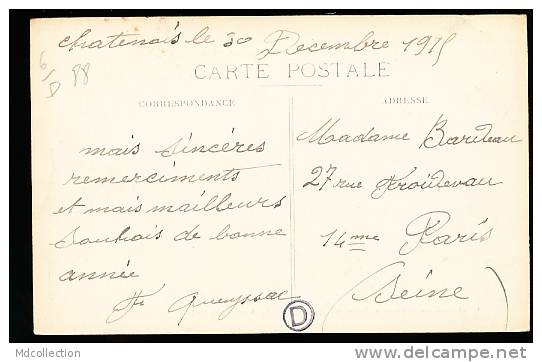 chatenois le 30 Decembre 1915
6/D 88
CARTE POSTALE
CORRESPONDANCE
ADRESSE
mais sincéres
remerciments
et mais mailleurs
souhais de bonne
année
Queyssac
Madame Barideau
27 rue Froidevau
14me Paris
(Seine)
D
MDcollection
delcampe.net